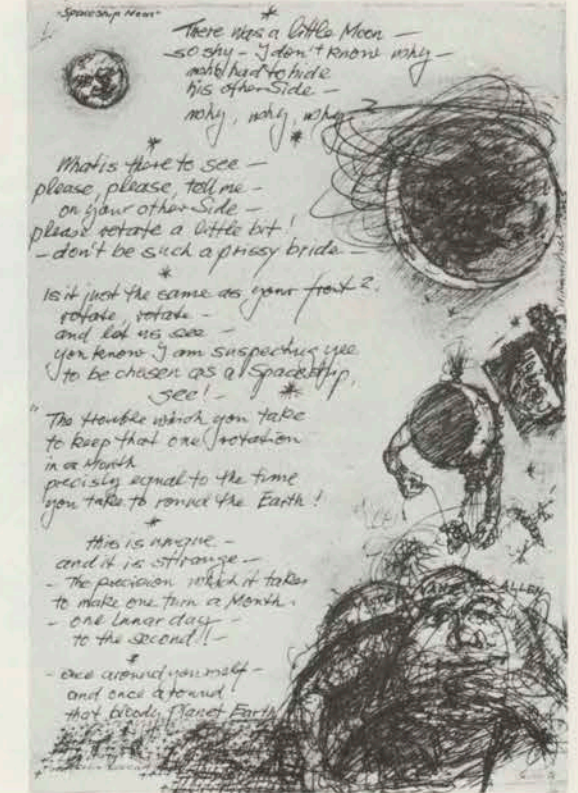 "Spaceship Moon"
There was a little Moon —
so shy — I don't know why —
had to hide
his other Side —
why, why, why ?
What is there to see —
please, please, tell me —
on your other Side —
please rotate a little bit !
— don't be such a prissy bride —
Is it just the same as your front ?
rotate, rotate —
and let us see —
you know I am suspecting yee
to be chosen as a Spaceship,
see! —
"The trouble which you take
to keep that one rotation
in a Month
precisly equal to the time
you take to round the Earth !
this is unique —
and it is strange —
— The precision which it takes
to make one turn a Month.
— one Lunar day —
to the second !! —
— once around yourself —
and once around
that bloody Planet Earth
ALLEN